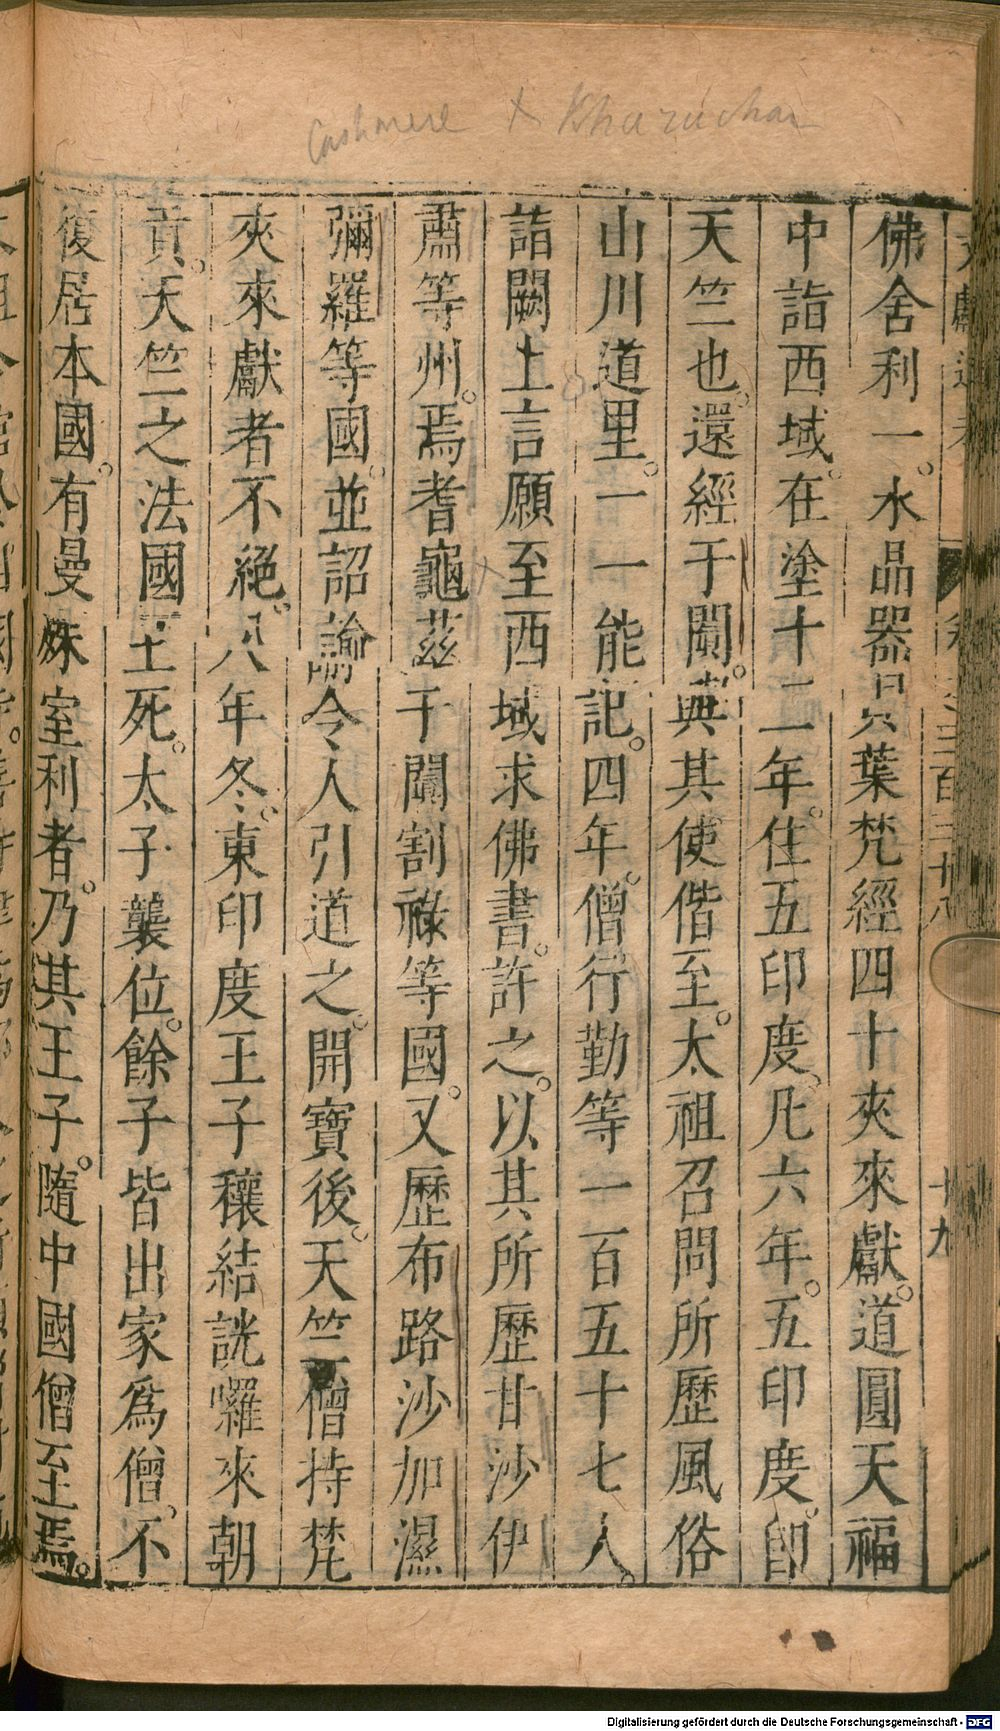 Cashmere +
佛舍利一。水品器貝葉梵經四十夾來獻。道圓天福
中詣西域。在塗十二年。住五印度。凡六年。五印度。卽
天竺也。還經于闐。與其使偕至。太祖召問所歷風俗
山川道里。一一能記。四年。僧行勤等一百五十七人。
詣闕上言願至西域求佛書。許之。以其所歷甘沙伊
肅等州。焉耆龜茲于闐割祿等國。又歷布路沙加濕
彌羅等國。並詔諭令人引道之。開寶後。天竺僧持梵
夾來獻者不絕。八年冬。東印度王子穰結説囉來朝
貢。天竺之法國王死。太子襲位。餘子皆出家爲僧。不
復居本國。有曼殊室利者。乃其王子。隨中國僧至焉。
文獻通考 卷之三百三十八 十九
Digitalisierung gefördert durch die Deutsche Forschungsgemeinschaft - DFG